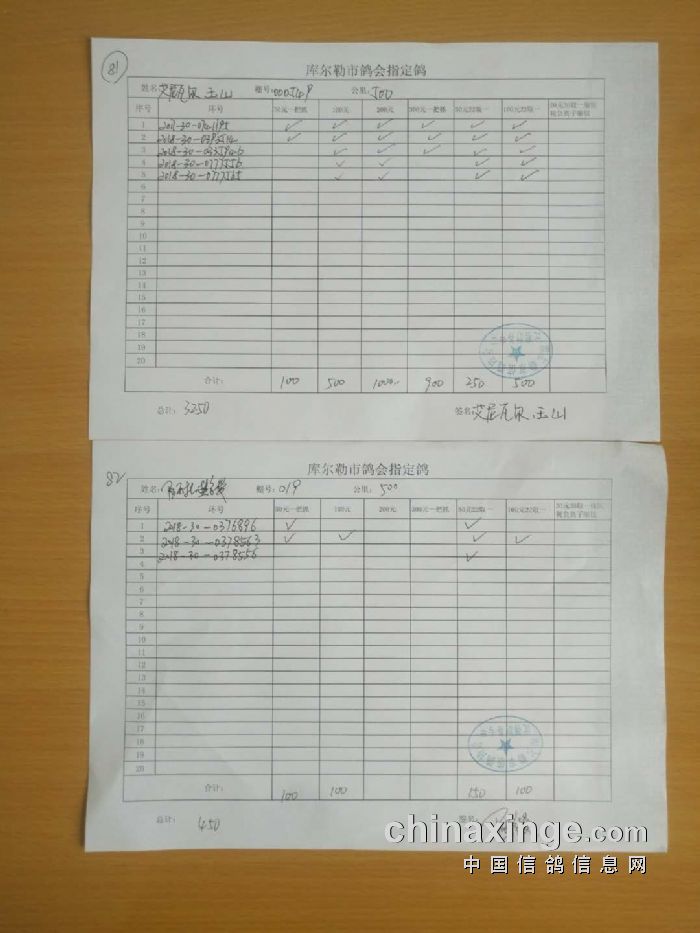 81
库尔勒市鸽会指定鸽
姓名: 艾尼瓦尔 玉山 棚号: 000549 公里: 500
序号 环号 50元一把抓 100元 200元 300元一把抓 50元22取一 100元22取一
1 ✓ ✓ ✓ ✓ ✓ ✓
2 ✓ ✓ ✓ ✓ ✓ ✓
3 ✓ ✓ ✓ ✓ ✓
4 2018-30-0777556 ✓ ✓ ✓ ✓
5 2018-30-0777565 ✓ ✓ ✓ ✓
6
7
8
9
10
11
12
13
14
15
16
17
18
19
20
合计: 100 500 1000 900 250 500
总计: 3250 签名: 艾尼瓦尔 玉山
82
库尔勒市鸽会指定鸽
姓名: 棚号: 019 公里: 500
序号 环号 50元一把抓 100元 200元 300元一把抓 50元22取一 100元22取一
1 2018-30-0376896 ✓ ✓
2 2018-30-0378563 ✓ ✓ ✓ ✓
3 2018-30-0378556 ✓
4
5
6
7
8
9
10
11
12
13
14
15
16
17
18
19
20
合计: 100 100 150 100
总计: 450 签名:
chinaxinge.com
中国信鸽信息网